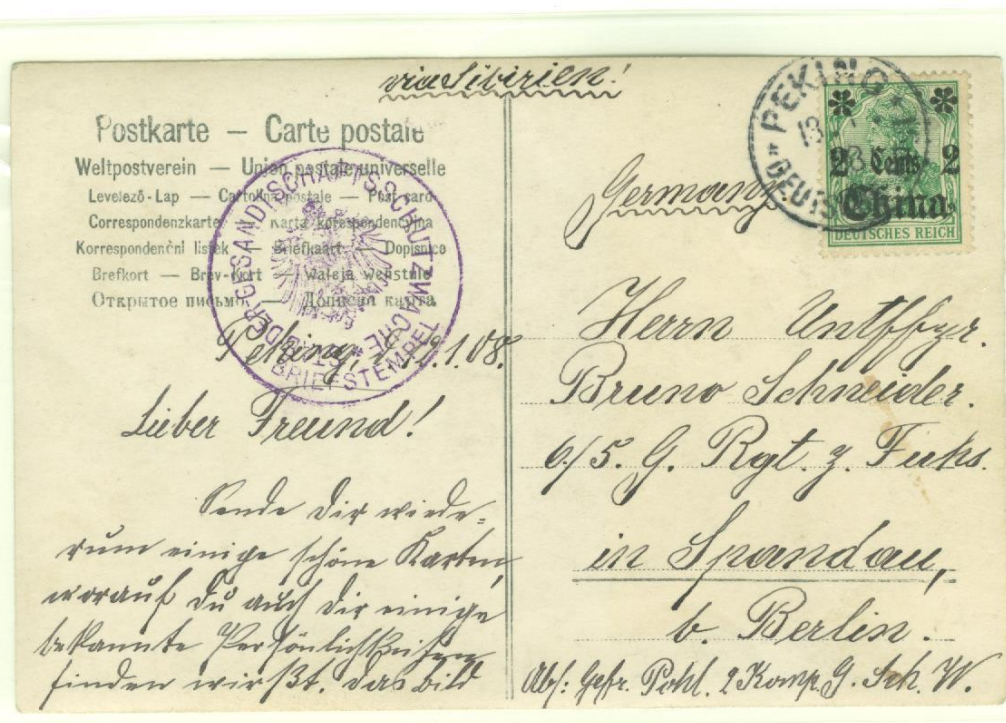 via Sibirien!
Postkarte — Carte postale
Weltpostverein — Union postale universelle
Levelező-Lap — Cartolina postale — Post card
Correspondenzkarte — Karta korespondencyjna
Korrespondenční listek — Briefkaart — Dopisnico
Brefkort — Brev-Kort — Waleja westule
Открытое письмо — Дописна карта
GESANDTSCHAFTS-SCHUTZWACHE
BRIEFSTEMPEL
Peking, 1.08.
Lieber Freund!
Sende Dir wiede-
rum einige schöne Karten,
worauf Du auch Dir einige
bekannte Persönlichkeiten
finden wirst. Das Bild
PEKING
DEUTSCHE
2 Cents 2
China
DEUTSCHES REICH
Germany
Herrn Untffzr.
Bruno Schneider.
6/5. G. Rgt. z. Fuks.
in Spandau,
b. Berlin.
Abs: Gefr. Pohl. 2 Komp. G. Sch. W.